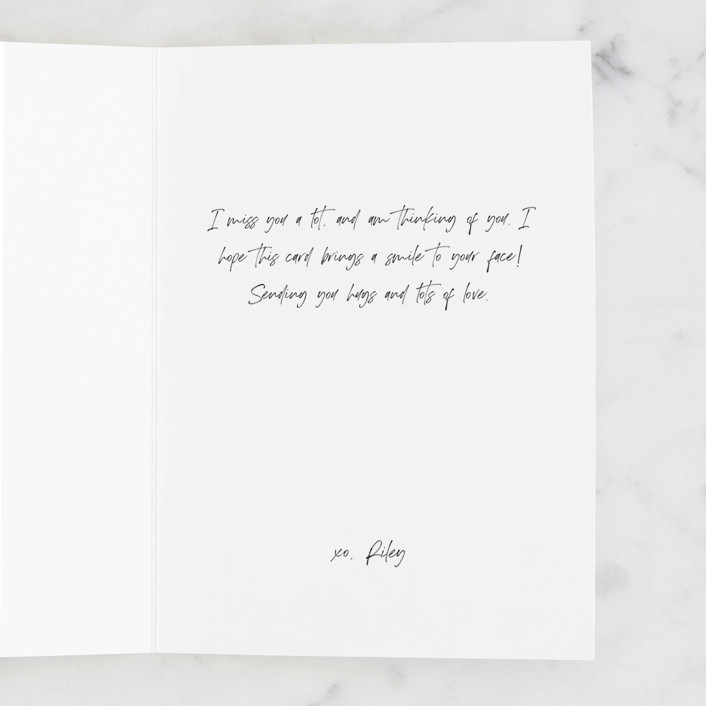 I miss you a lot, and am thinking of you. I
hope this card brings a smile to your face!
Sending you hugs and lots of love.
xo, Riley